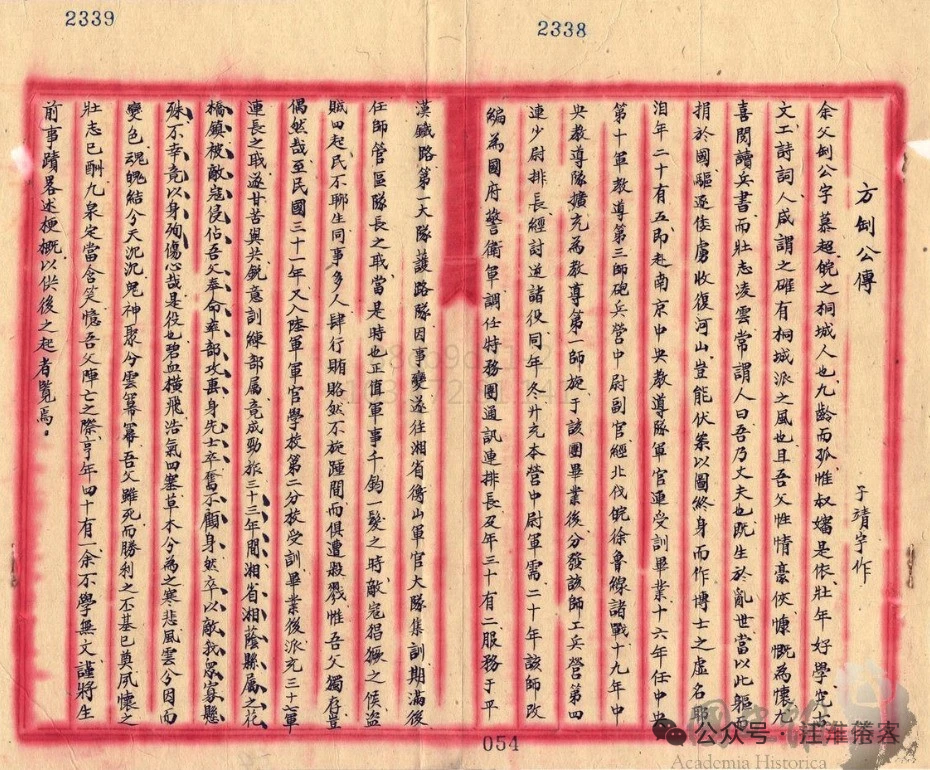 2339
2338
方釗公傳
子靖宇作
余父釗公字慕超皖之桐城人也九齡而孤惟叔嬸是依壯年好學究古
文工詩詞人咸謂之確有桐城派之風也且吾父性情豪俠慷慨為懷九
喜閱讀兵書而壯志凌雲常謂人曰吾乃丈夫也既生於亂世當以此軀而
捐於國驅逐倭虜收復河山豈能伏案以圖終身而作博士之虛名
洎年二十有五即赴南京中央教導隊軍官連受訓畢業十六年任中央
第十軍教導第三師砲兵營中尉副官經北伐皖徐魯線諸戰十九年中
央教導隊擴充為教導第一師旋于該團畢業後分發該師工兵營第四
連少尉排長經討逆諸役同年冬升充本營中尉軍需二十年該師改
編為國府警衛軍調任特務團通訊連排長及年三十有二服務于平
漢鐵路第一大隊護路隊因事變遂往湘省衡山軍官大隊集訓期滿後
任師管區隊長之職當是時也正值軍事千鈞一髮之時敵寇猖獗之候盜
賊四起民不聊生同事多人肆行賄賂然不旋踵間而俱遭殺戮惟吾父獨存豈
偶然哉至民國三十一年又入陸軍軍官學校第二分校受訓畢業後派充三十七軍
連長之職遂甘苦與共銳意訓練部屬竟成勁旅三十三年間湘省湘蔭縣屬之花
橋鎮被敵寇侵佔吾父奉命率部攻裏身先士卒奮不顧身然卒以敵我眾寡懸
殊不幸竟以身殉傷心哉是役也碧血橫飛浩氣四塞草本兮為之寒悲風雲兮因而
變色魂魄結兮天沉沉鬼神聚兮雲冪冪吾父雖死而勝利之丕基已奠夙懷之
壯志已酬九泉定當含笑憶吾父陣亡之際享年四十有一余不學無文謹將生
前事蹟畧述梗概以供後之起者覽焉。
054
公众号·洼淮倦客
Academia Historica